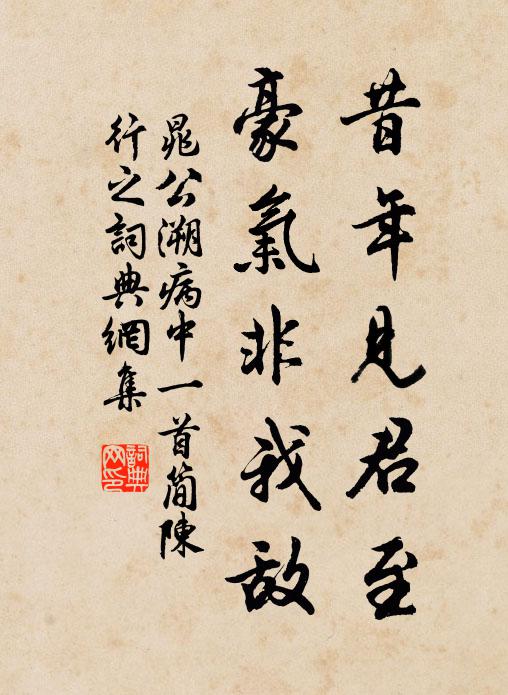 昔年見君至
豪氣非我敵
晁公溯病中一首簡陳
行之詞典網集
詞典网印